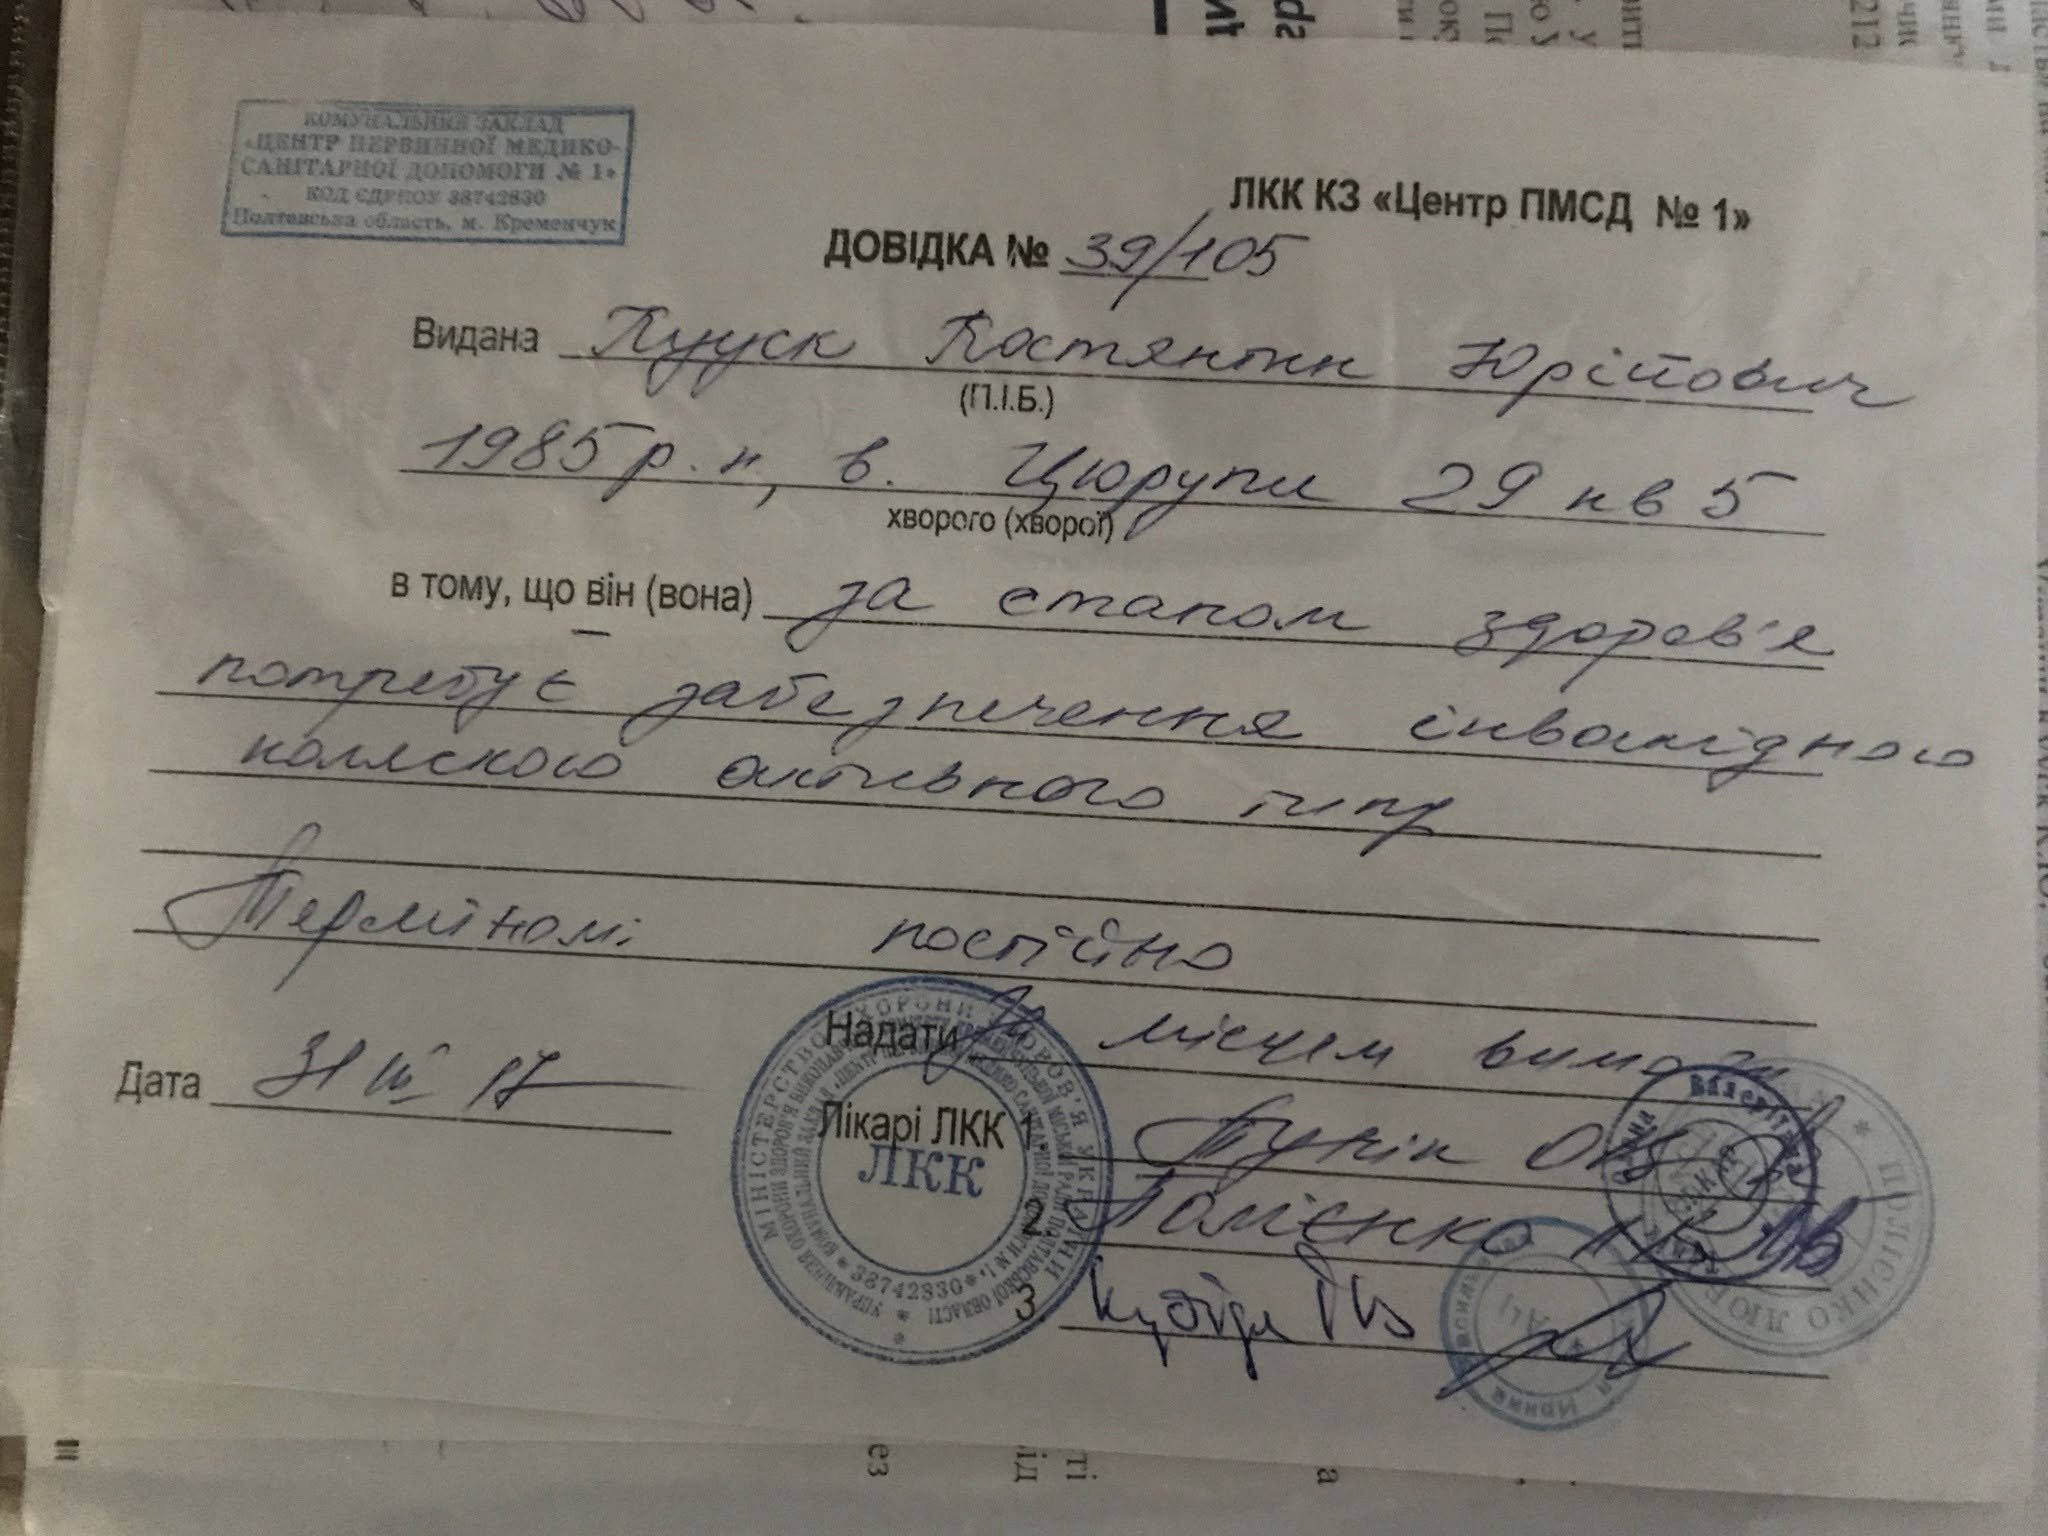 КОМУНАЛЬНИЙ ЗАКЛАД
«ЦЕНТР ПЕРВИННОЇ МЕДИКО-
САНІТАРНОЇ ДОПОМОГИ № 1»
КОД ЄДРПОУ 38742830
Полтавська область, м. Кременчук
ЛКК КЗ «Центр ПМСД № 1»
ДОВІДКА № 39/105
Видана Кууск Костянтин Юрійович
(П.І.Б.)
1985 р.н, в. Цюрупи 29 кв 5
хворого (хворої)
в тому, що він (вона) за станом здоров'я
потребує забезпечення інвалідного
коляского активного типу
Терміном: постійно
Надати За місцем вимоги
Дата 31 III 17
Лікарі ЛКК 1
ЛКК
2
3
МІНІСТЕРСТВО ОХОРОНИ ЗДОРОВ'Я УКРАЇНИ
38742830